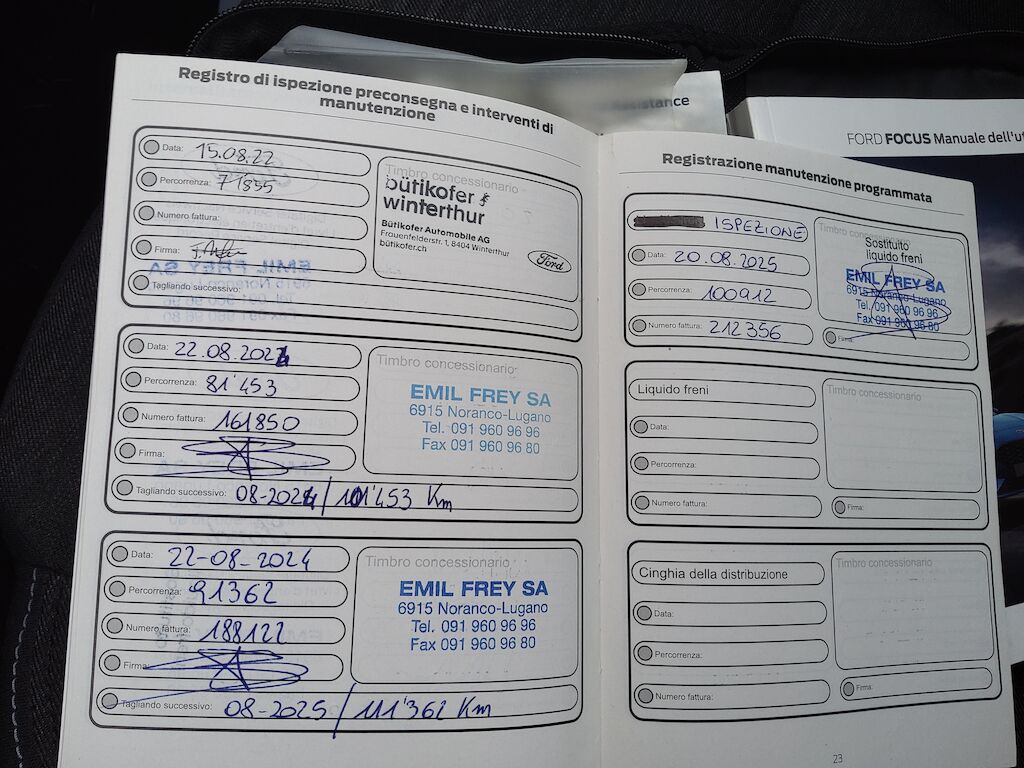 Registro di ispezione preconsegna e interventi di
manutenzione
Data: 15.08.22
Percorrenza: 71855
Numero fattura:
Firma:
Tagliando successivo:
Timbro concessionario
bütikofer
winterthur
Bütikofer Automobile AG
Frauenfelderstr. 1, 8404 Winterthur
bütikofer.ch
Ford
Data: 22.08.202
Percorrenza: 81'453
Numero fattura: 161850
Firma:
Tagliando successivo: 08-2024/101'453 Km
Timbro concessionario
EMIL FREY SA
6915 Noranco-Lugano
Tel. 091 960 96 96
Fax 091 960 96 80
Data: 22-08-2024
Percorrenza: 91362
Numero fattura: 188122
Firma:
Tagliando successivo: 08-2025/111'362 Km
Timbro concessionario
EMIL FREY SA
6915 Noranco-Lugano
Tel. 091 960 96 96
Fax 091 960 96 80
Assistance
FORD FOCUS Manuale dell'ut
Registrazione manutenzione programmata
ISPEZIONE
Data: 20.08.2025
Percorrenza: 100912
Numero fattura: 212356
Timbro concessionario
Sostituito
liquido freni
EMIL FREY SA
6915 Noranco-Lugano
Tel. 091 960 96 96
Fax 091 960 96 80
Firma:
Liquido freni
Data:
Percorrenza:
Numero fattura:
Timbro concessionario
Firma:
Cinghia della distribuzione
Data:
Percorrenza:
Numero fattura:
Timbro concessionario
Firma:
23